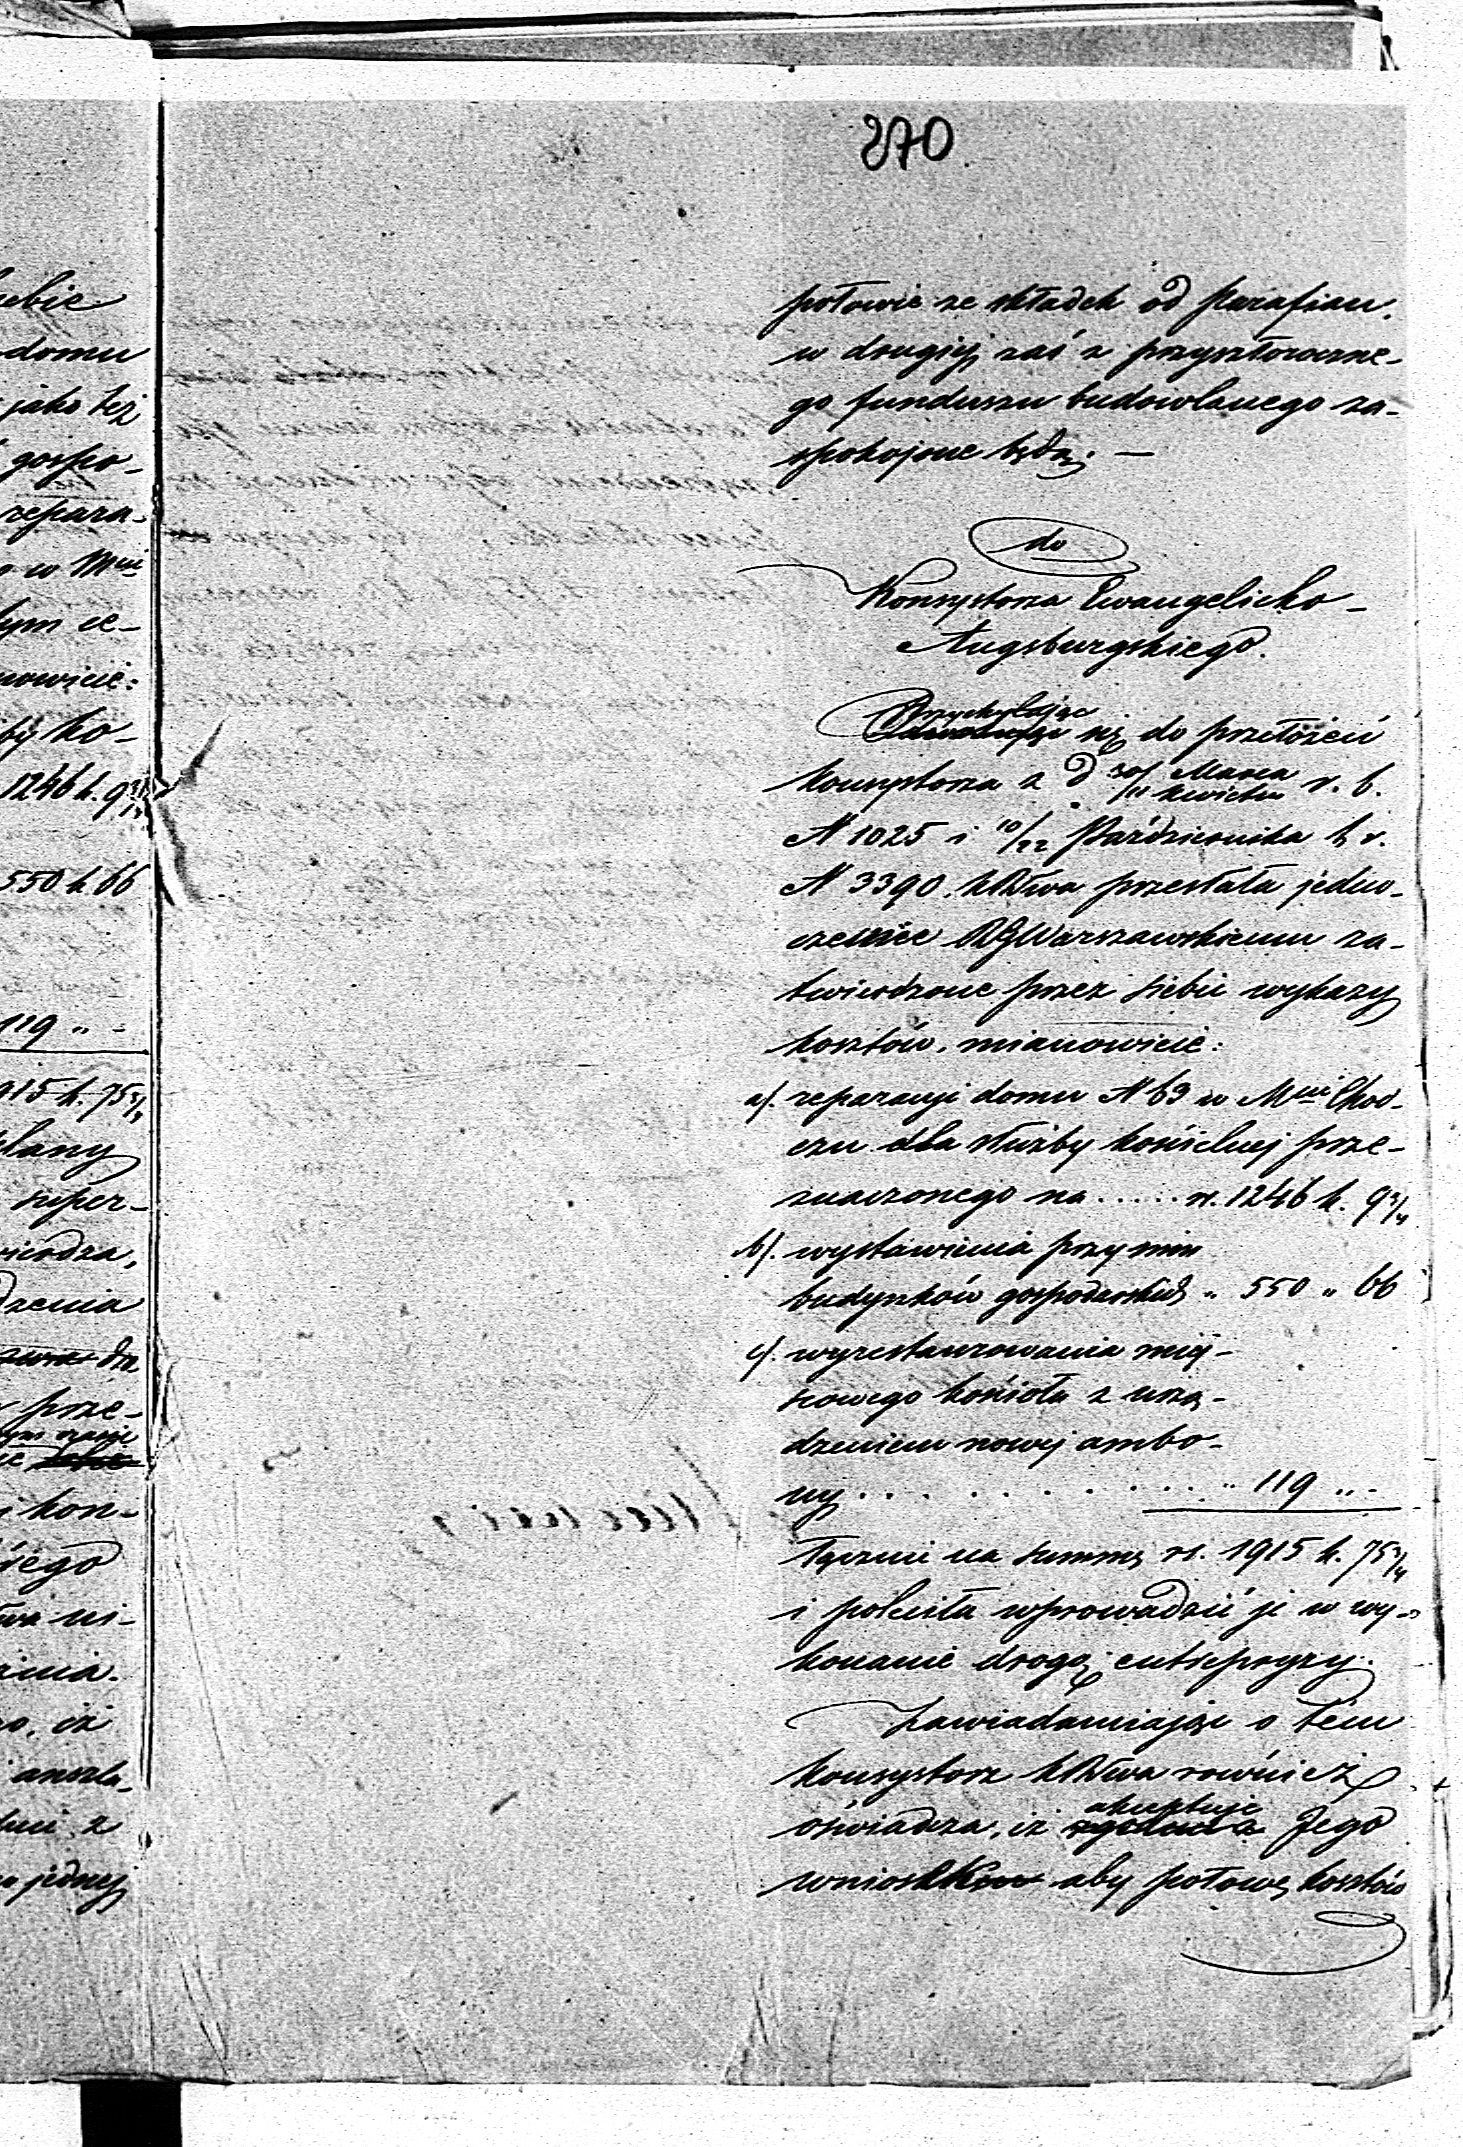 270
połowie ze składek od Parafian,
w drugiej zaś z przyszłoroczne-
go funduszu budowlanego za-
spokojone będą. —
do
Konsystorza Ewangelicko-
Augsburgskiego.
Przychylając
się do przełożeń
Konsystorza z d 30/11 Marca/Kwietnia r. b.
N 1025 i 10/22 Października t. r.
N 3390, KRWwa przesłała jedno-
cześnie RGWarszawskiemu za-
twierdzone przez siebie wykazy
kosztów, mianowicie:
a/. reparacyi domu N 63 w Mcie Cho-
czu dla służby kościelnej prze-
znaczonego na . . . . . rs. 1246 k. 9 3/4
b/. wystawienia przy nim
budynków gospodarskich „ 550 „ 66
c/. wyrestaurowania miej-
scowego kościoła z urzą-
dzeniem nowej ambo-
ny . . . . . . . . . . . . „ 119 „ -
łącznie na summę rs. 1915 k. 75 3/4
i poleciła wprowadzić je w wy-
konanie drogą entrepryzy.
Zawiadamiając o tém
Konsystorz KRWwa również
akceptuje
oświadcza, iż Jego
aby połowę kosztów
ebie
domu
jako też
gospo-
repara-
w Mcie
tym ce-
nowicie:
by ko-
1246 k. 9 3/4
550 k. 66
119 „ -
1915 k. 75 3/4